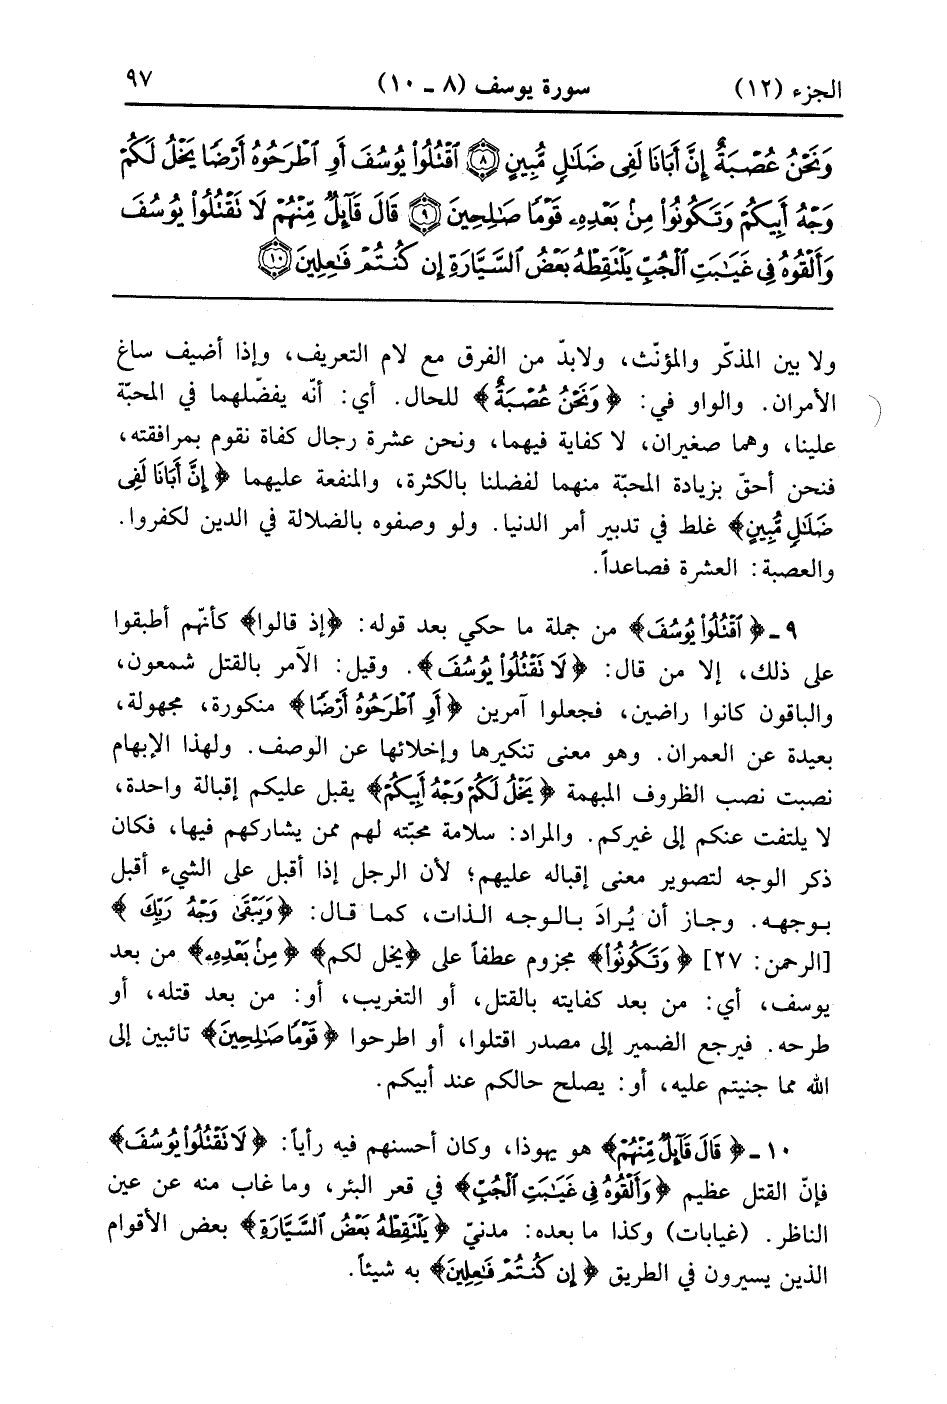 الجزء (١٢) سورة يوسف (٨ ـ ١٠) ٩٧
وَنَحْنُ عُصْبَةٌ إِنَّ أَبَانَا لَفِى ضَلَٰلٍ مُّبِينٍ ٨ ٱقْتُلُوا۟ يُوسُفَ أَوِ ٱطْرَحُوهُ أَرْضًا يَخْلُ لَكُمْ
وَجْهُ أَبِيكُمْ وَتَكُونُوا۟ مِنۢ بَعْدِهِۦ قَوْمًا صَٰلِحِينَ ٩ قَالَ قَآئِلٌ مِّنْهُمْ لَا تَقْتُلُوا۟ يُوسُفَ
وَأَلْقُوهُ فِى غَيَٰبَتِ ٱلْجُبِّ يَلْتَقِطْهُ بَعْضُ ٱلسَّيَّارَةِ إِن كُنتُمْ فَٰعِلِينَ ١٠
ولا بين المذكّر والمؤنّث، ولابدّ من الفرق مع لام التعريف، وإذا أضيف ساغ
الأمران. والواو في: ﴿وَنَحْنُ عُصْبَةٌ﴾ للحال. أي: أنّه يفضّلهما في المحبّة
علينا، وهما صغيران، لا كفاية فيهما، ونحن عشرة رجال كفاة نقوم بمرافقته،
فنحن أحقّ بزيادة المحبّة منهما لفضلنا بالكثرة، والمنفعة عليهما ﴿إِنَّ أَبَانَا لَفِى
ضَلَٰلٍ مُّبِينٍ﴾ غلط في تدبير أمر الدنيا. ولو وصفوه بالضلالة في الدين لكفروا.
والعصبة: العشرة فصاعداً.
٩ ـ ﴿ٱقْتُلُوا۟ يُوسُفَ﴾ من جملة ما حكي بعد قوله: ﴿إذ قالوا﴾ كأنّهم أطبقوا
على ذلك، إلا من قال: ﴿لَا تَقْتُلُوا۟ يُوسُفَ﴾. وقيل: الآمر بالقتل شمعون،
والباقون كانوا راضين، فجعلوا آمرين ﴿أَوِ ٱطْرَحُوهُ أَرْضًا﴾ منكورة، مجهولة،
بعيدة عن العمران. وهو معنى تنكيرها وإخلائها عن الوصف. ولهذا الإبهام
نصبت نصب الظروف المبهمة ﴿يَخْلُ لَكُمْ وَجْهُ أَبِيكُمْ﴾ يقبل عليكم إقبالة واحدة،
لا يلتفت عنكم إلى غيركم. والمراد: سلامة محبّته لهم ممن يشاركهم فيها، فكان
ذكر الوجه لتصوير معنى إقباله عليهم؛ لأن الرجل إذا أقبل على الشيء أقبل
بوجهه. وجاز أن يُرادَ بالوجه الذات، كما قال: ﴿وَيَبْقَىٰ وَجْهُ رَبِّكَ﴾
[الرحمن: ٢٧] ﴿وَتَكُونُوا۟﴾ مجزوم عطفاً على ﴿يخل لكم﴾ ﴿مِنۢ بَعْدِهِۦ﴾ من بعد
يوسف، أي: من بعد كفايته بالقتل، أو التغريب، أو: من بعد قتله، أو
طرحه. فيرجع الضمير إلى مصدر اقتلوا، أو اطرحوا ﴿قَوْمًا صَٰلِحِينَ﴾ تائبين إلى
الله مما جنيتم عليه، أو: يصلح حالكم عند أبيكم.
١٠ ـ ﴿قَالَ قَآئِلٌ مِّنْهُمْ﴾ هو يهوذا، وكان أحسنهم فيه رأياً: ﴿لَا تَقْتُلُوا۟ يُوسُفَ﴾
فإنّ القتل عظيم ﴿وَأَلْقُوهُ فِى غَيَٰبَتِ ٱلْجُبِّ﴾ في قعر البئر، وما غاب منه عن عين
الناظر. (غيابات) وكذا ما بعده: مدنيّ ﴿يَلْتَقِطْهُ بَعْضُ ٱلسَّيَّارَةِ﴾ بعض الأقوام
الذين يسيرون في الطريق ﴿إِن كُنتُمْ فَٰعِلِينَ﴾ به شيئاً.